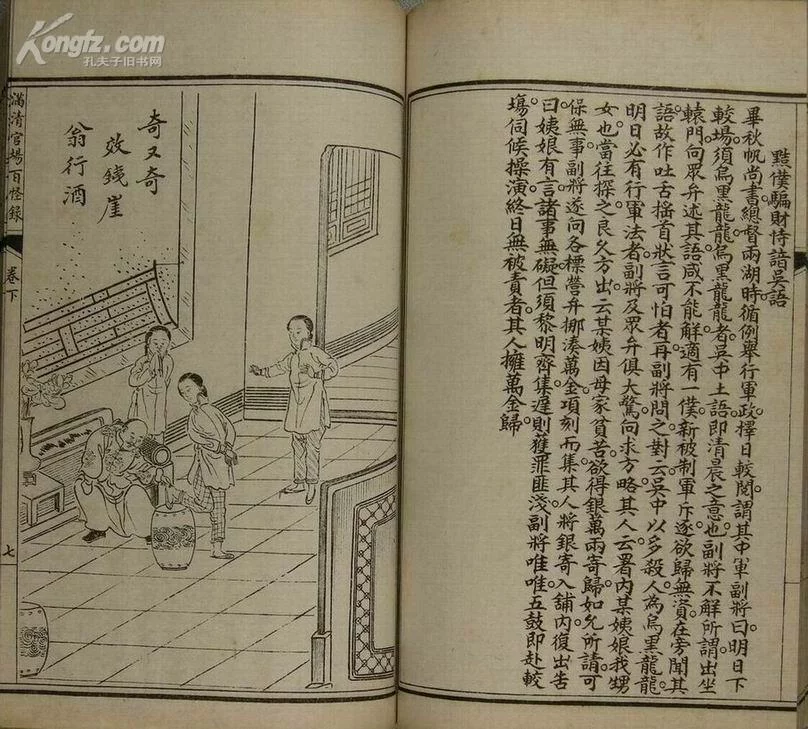 黠僕騙財恃諳吳語
畢秋帆尚書總督兩湖時循例舉行軍政擇日較閱謂其中軍副將曰明日下
較場須烏黑龍龍烏黑龍龍者吳中土語即清晨之意也副將不解所謂出坐
轅門向眾弁述其語咸不能解適有一僕新被制軍斥逐欲歸無資在旁聞其
語故作吐舌搖首狀言可怕者再副將問之對云吳中以多殺人為烏黑龍龍
明日必有行軍法者副將及眾弁俱大驚向求方略其人云署內某姨娘我甥
女也當往探之良久方出云某姨因母家貧苦欲得銀萬兩寄歸如允所請可
保無事副將遂向各標營弁挪湊萬金項刻而集其人將銀寄入舖內復出告
曰姨娘有言諸事無礙但須黎明齊集遲則獲罪匪淺副將唯唯五鼓即赴較
塲伺候操演終日無被責者其人擁萬金歸
奇又奇
效錢崖
翁行酒
滿清官場百怪錄
卷下
七
Kongfz.com
孔夫子旧书网